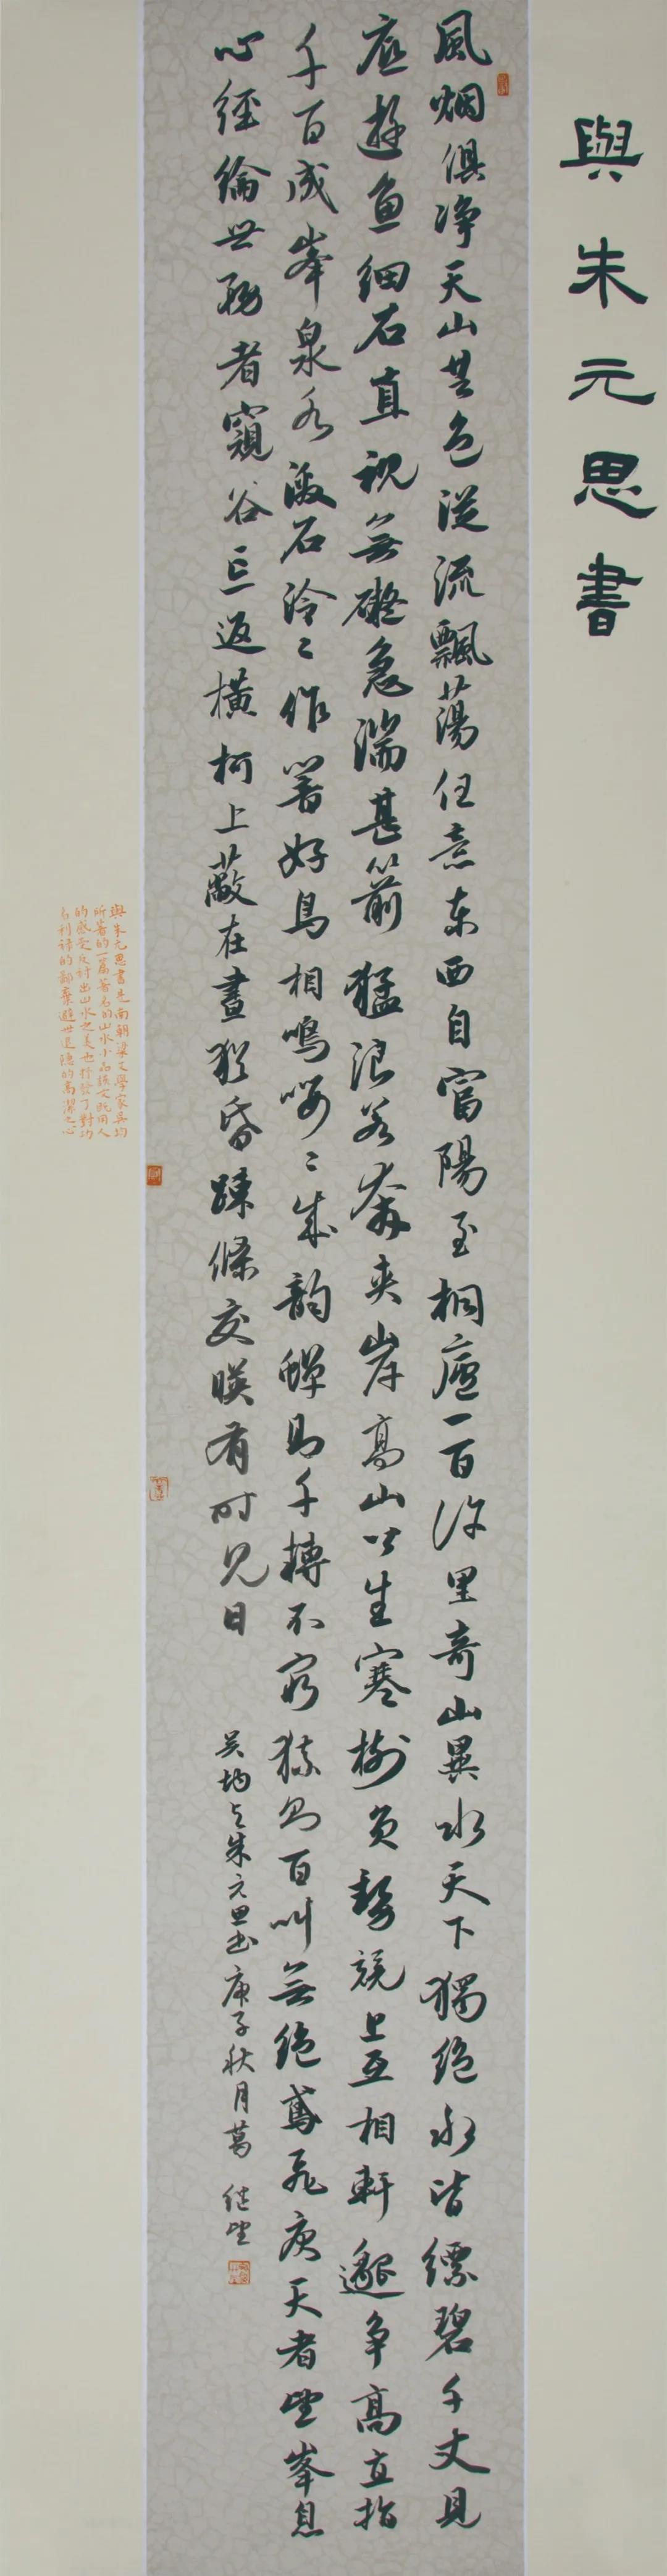 與朱元思書
風烟俱净天山共色從流飄蕩任意東西自富陽至桐廬一百许里奇山異水天下獨絶水皆縹碧千丈見
底遊魚細石直視無礙急湍甚箭猛浪若奔夾岸高山皆生寒樹負勢競上互相軒邈争高直指
千百成峯泉水激石泠〻作響好鳥相鳴嚶〻成韵蟬則千轉不窮猿則百叫無絶鳶飛戾天者望峯息
心經綸世務者窺谷忘返橫柯上蔽在晝猶昏疎條交映有时見日
吴均与朱元思书 庚子秋月葛 继望
與朱元思書是南朝梁文學家吳均
所著的一篇著名的山水小品駢文既用人
的感受反衬出山水之美也抒發了對功
名利祿的鄙棄避世退隱的高潔之心